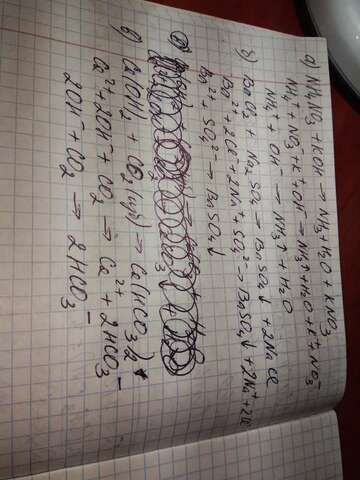 а) NH₄NO₃ + KOH → NH₃ + H₂O + KNO₃
NH₄⁺ + NO₃⁻ + K⁺ + OH⁻ → NH₃↑ + H₂O + K⁺ + NO₃⁻
NH₄⁺ + OH⁻ → NH₃↑ + H₂O
б) BaCl₂ + Na₂SO₄ → BaSO₄↓ + 2NaCl
Ba²⁺ + 2Cl⁻ + 2Na⁺ + SO₄²⁻ → BaSO₄↓ + 2Na⁺ + 2Cl⁻
Ba²⁺ + SO₄²⁻ → BaSO₄↓
в) Ca(OH)₂ + CO₂ → Ca(HCO₃)₂
Ca²⁺ + 2OH⁻ + CO₂ → Ca²⁺ + 2HCO₃⁻
2OH⁻ + CO₂ → 2HCO₃⁻